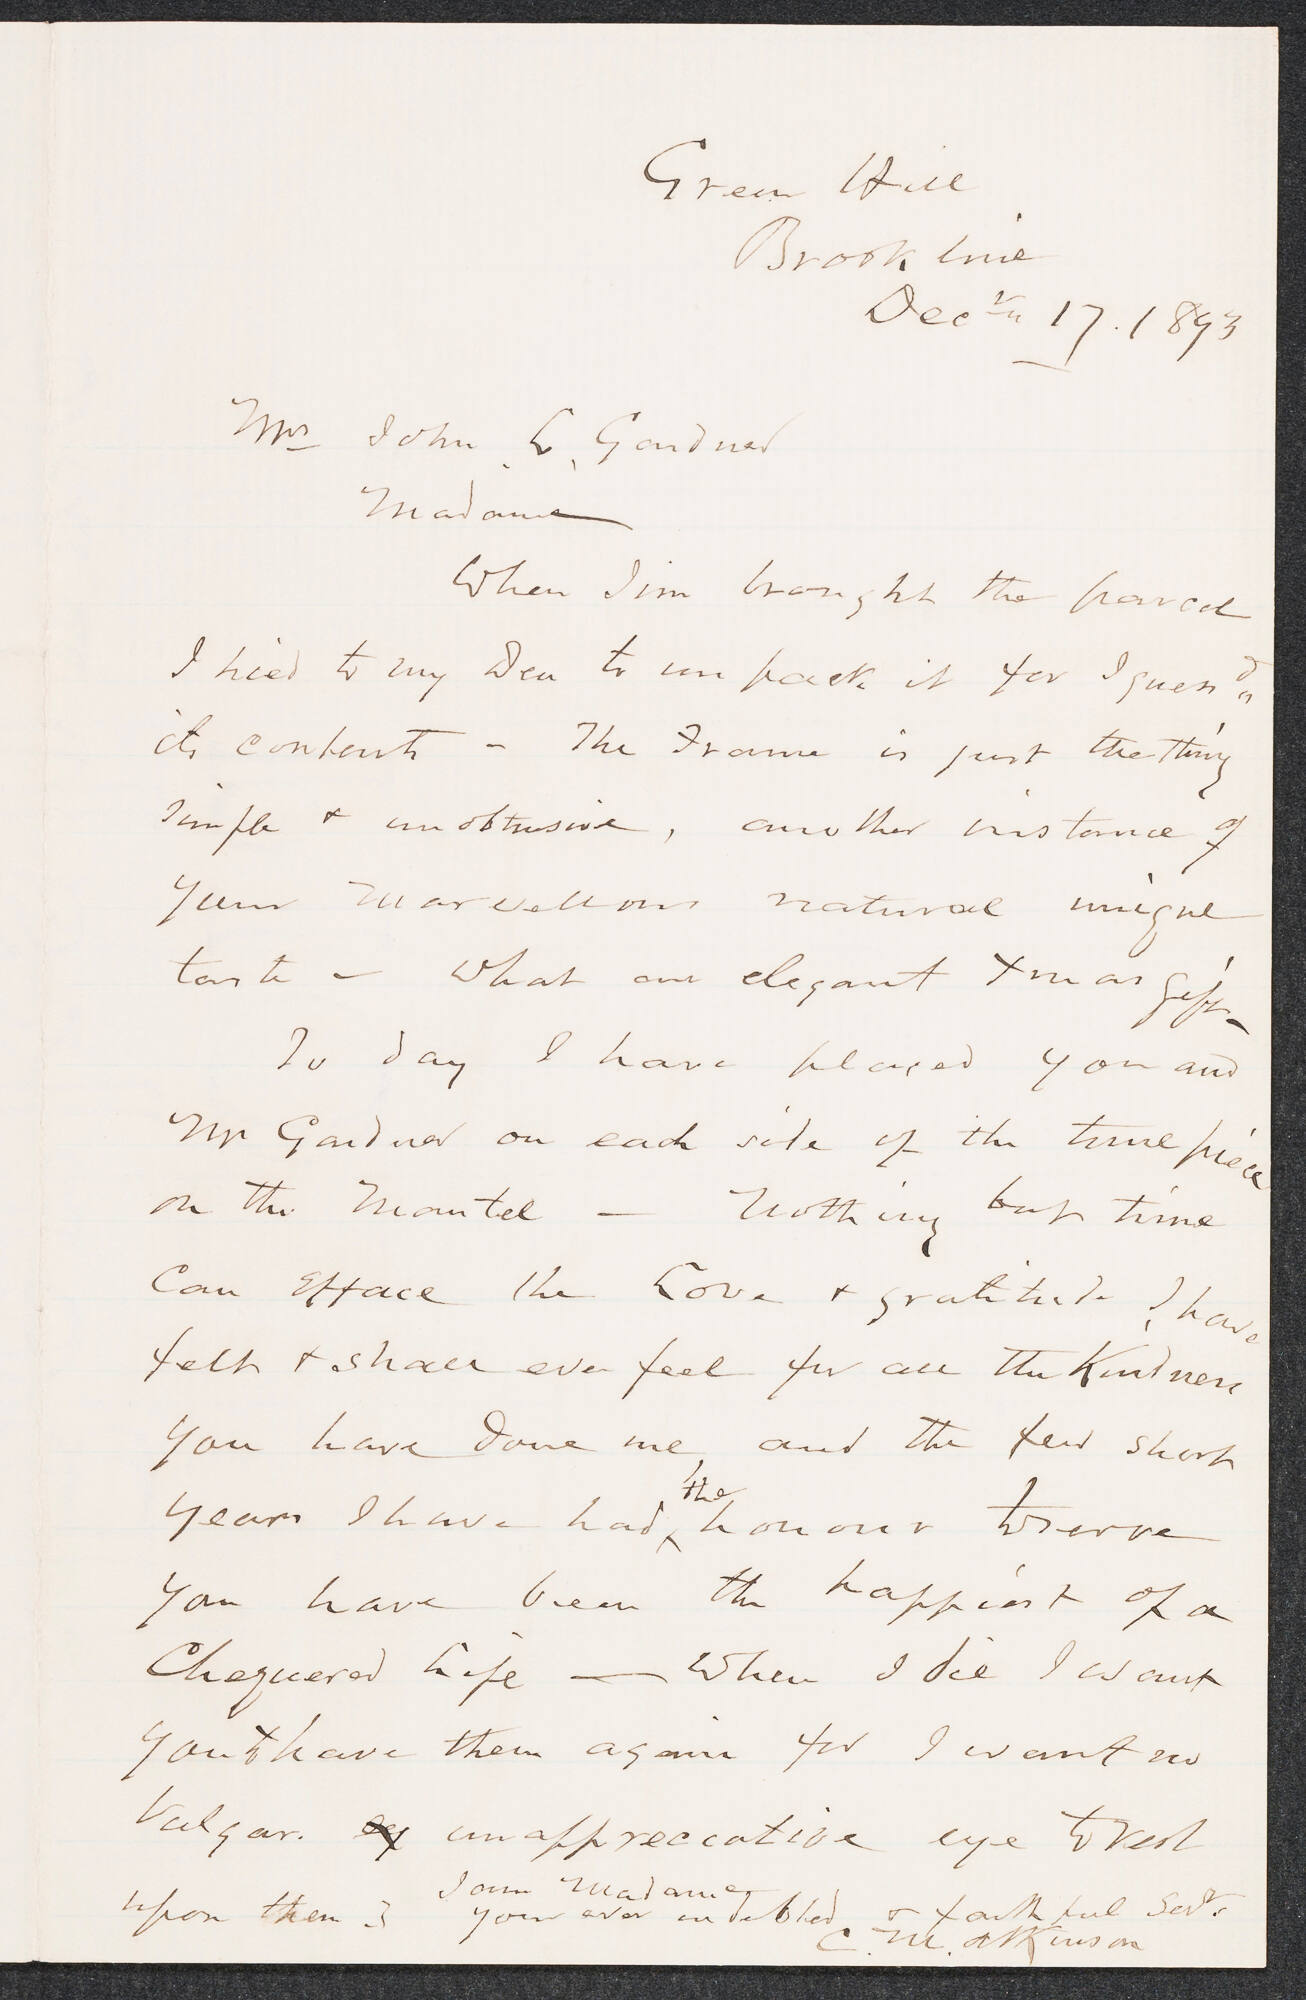 Green Hill
Brookline
Decr 17. 1893
Mrs John L. Gardner
Madame
When Jim brought the parcel
I hied to my Den to unpack it for I guess'd
its contents - The Frame is just the thing
simple & unobtrusive, another instance of
your marvellous natural unique
taste - What an elegant Xmas gift -
To day I have placed you and
Mr Gardner on each side of the time piece
on the Mantel — Nothing but time
Can Efface the Love & gratitude I have
felt & shall ever feel for all the Kindness
you have done me, and the few short
years I have had the honour to serve
you have been the happiest of a
Chequered Life — When I die I want
you to have them again for I want no
Vulgar. unappreccative eye to rest
upon them
I am Madame
your ever indebted & faithful Servt.
C. M. Atkinson